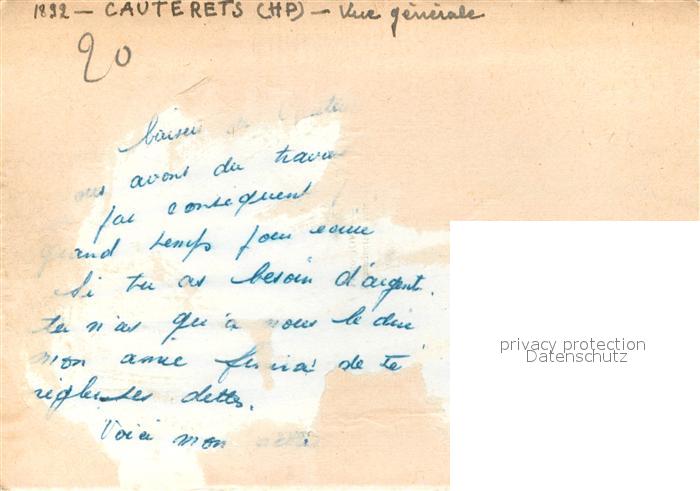 1892 - CAUTERETS (HP) - Vue générale
20
baiser
avons du trava
par consequent
and temps pour
Si tu as besoin d'argent.
tu n'as qu'à nous le dire
mon amie de te
dettes.
Voici mon
privacy protection
Datenschutz